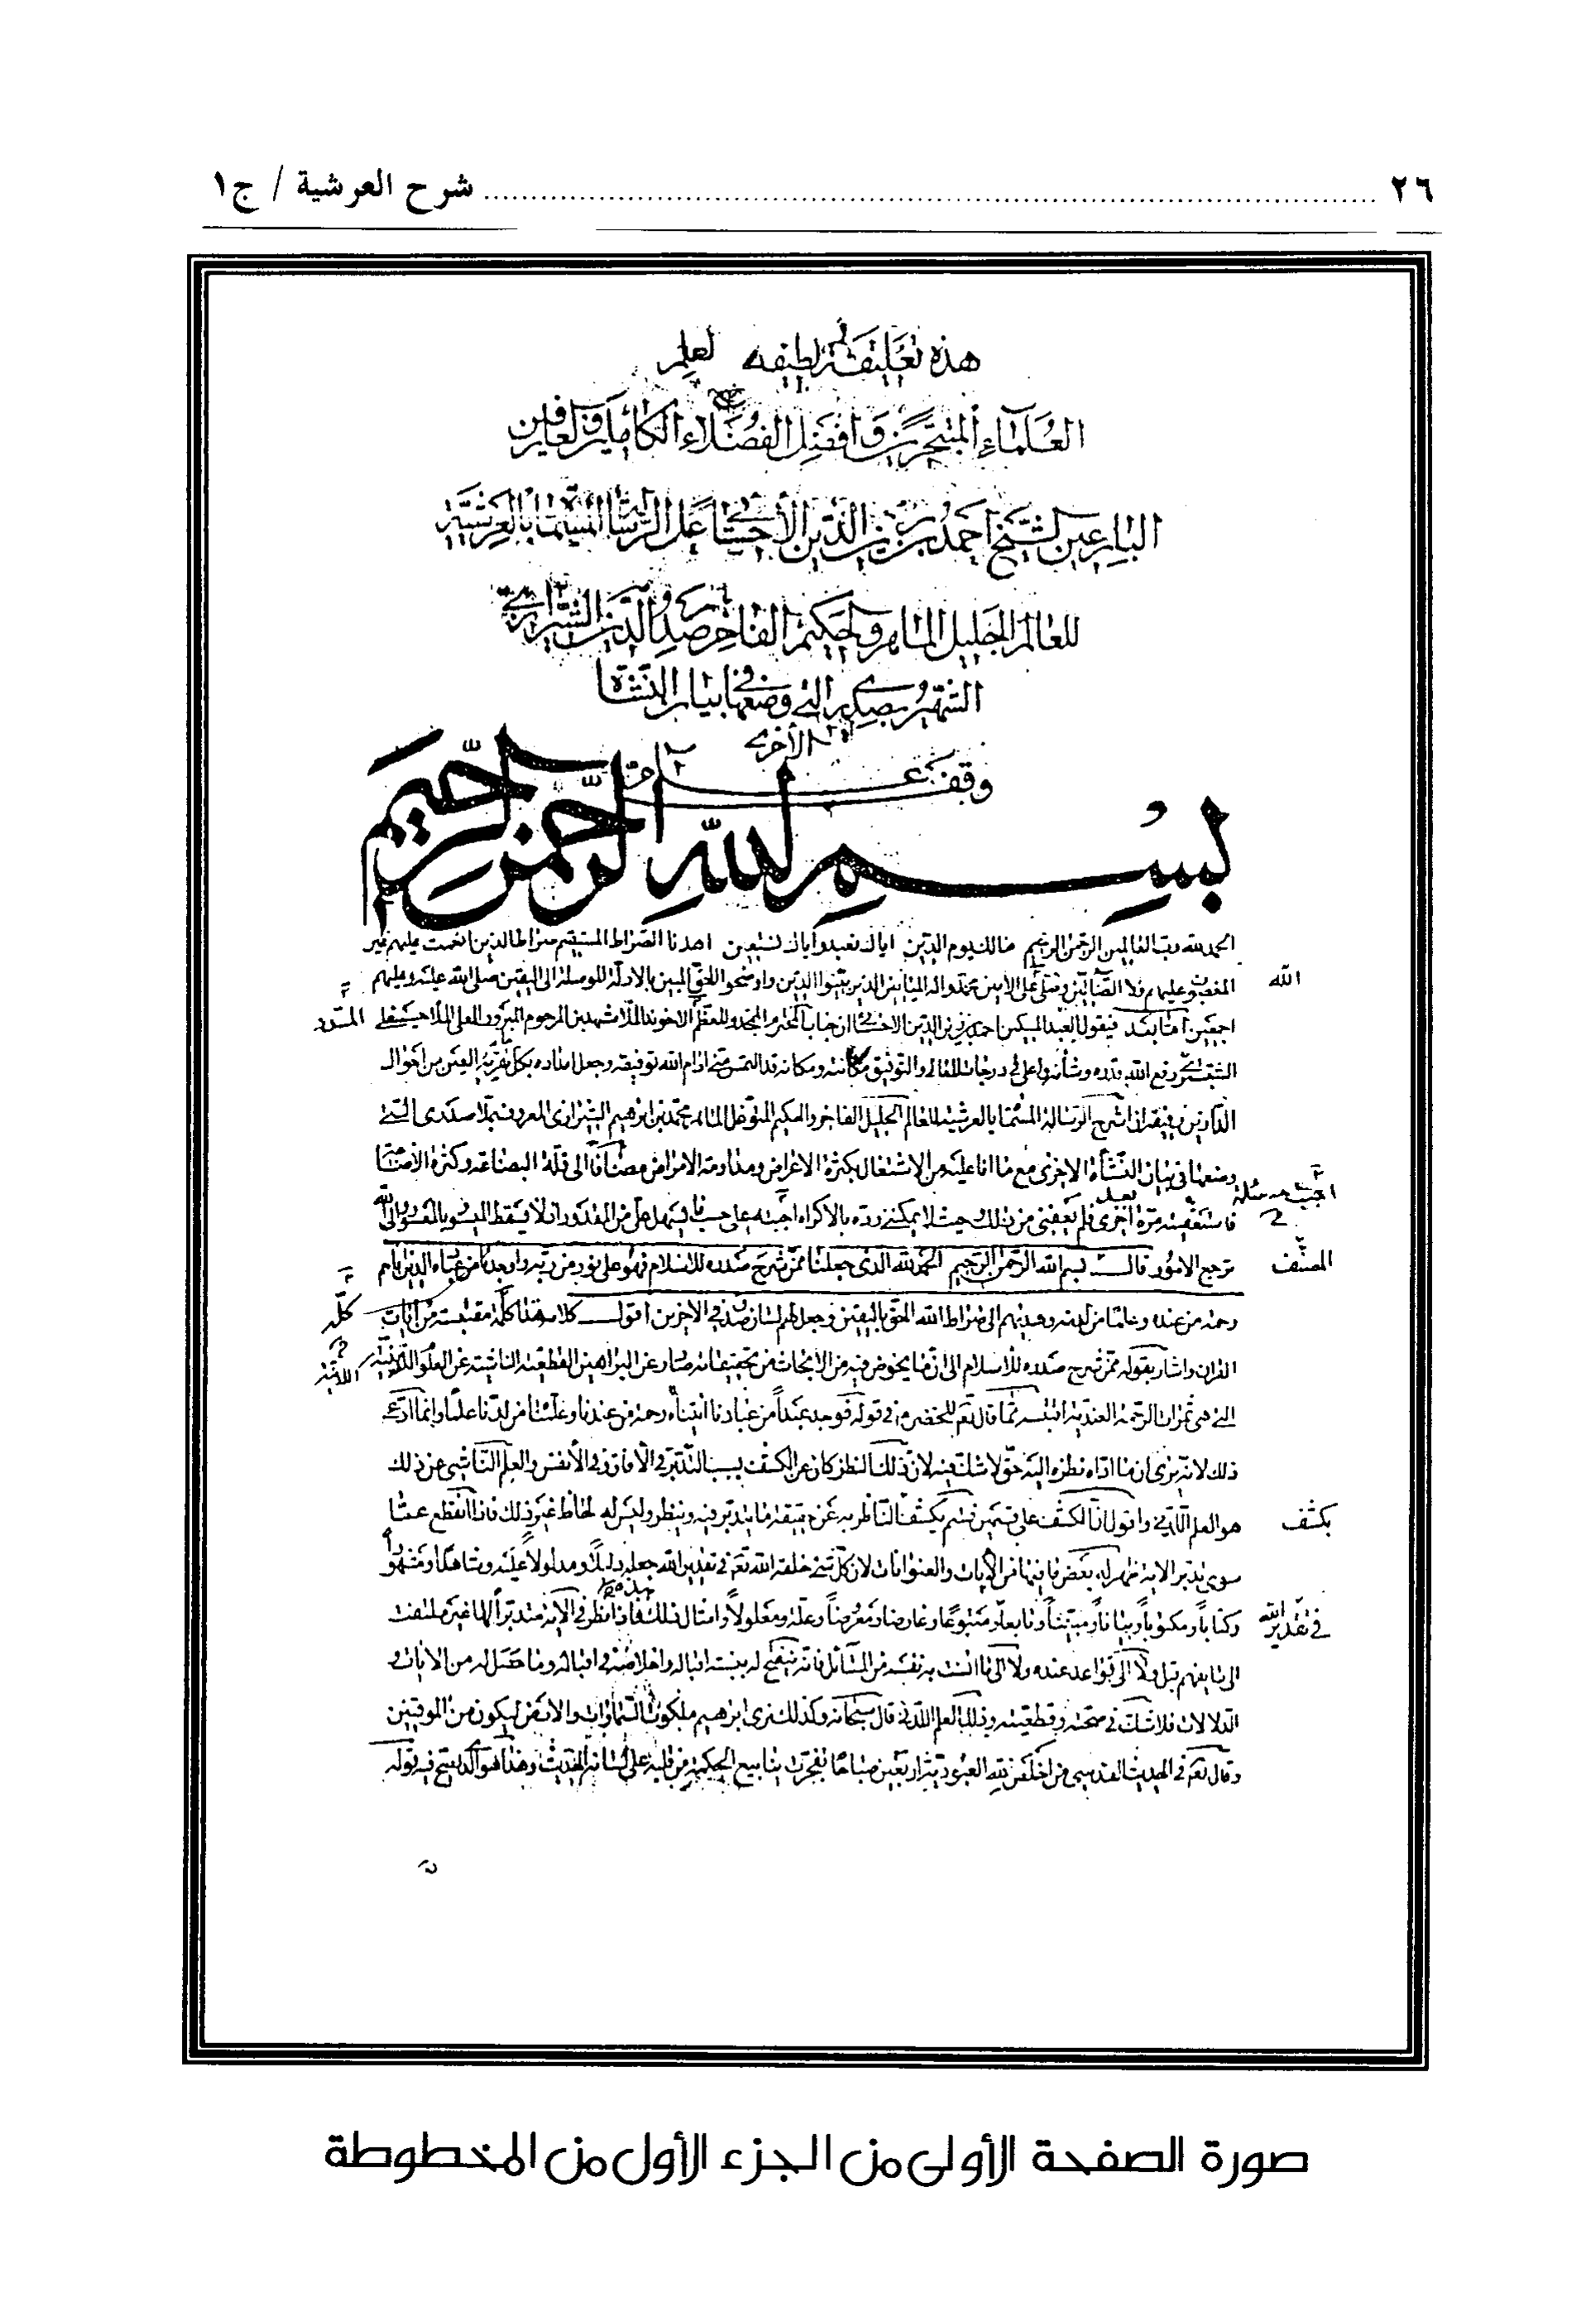 ٢٦ ........ شرح العرشية / ج١
هذه تعليقة لطيفة لعلم
العلماء المتبحرين وافضل الفضلاء الكاملين والعارفين
البارعين الشيخ احمد بن زين الدين الأحسائي على الرسالة المسماة بالعرشية
للعالم الجليل الماهر والحكيم الفاخر صدر الدين الشيرازي
الشهير بصدرا التي وضعها في بيان النشأة
الأخرى
وقف عام
بسم الله الرحمن الرحيم
الحمد لله رب العالمين الرحمن الرحيم مالك يوم الدين اياك نعبد واياك نستعين اهدنا الصراط المستقيم صراط الذين انعمت عليهم غير
المغضوب عليهم ولا الضالين وصلى الله على الامين محمد واله الميامين الذين بينوا الدين واوضحوا الحق المبين بالادلة الموصلة الى اليقين صلى الله عليه وعليهم
اجمعين اما بعد فيقول العبد المسكين احمد بن زين الدين الاحسائي ان جناب المحترم الممجد والمعظم الاخوند الملا مشهد بن المرحوم المبرور العلي الملا حسينعلي
المسدد
الشبستري رفع الله قدره وشأنه واعلى في درجات المعالي والتوفيق مكانته ومكانه قد التمس مني ادام الله توفيقه وجعل امداده بكل ما تقر به العين من احوال
الدارين رفيقه ان اشرح الرسالة المسماة بالعرشية للعالم الجليل الفاخر والحكيم المتوغل الماهر محمد بن ابرهيم الشيرازي المعروف بملا صدرى التي
وضعها في بيان النشأة الاخرى مع ما انا عليه من الاشتغال بكثرة الاعراض ومداومة الامراض مضافا الى قلة البضاعة وكثرة الاضاعة
فاستعفيته مرة بعد اخرى فلم يعفني من ذلك وحيث لا يمكنني رده بالاكراه اجبته على حسب ما يسهل علي من المقدور اذ لا يسقط الميسور بالمعسور والى الله
ترجع الامور قال بسم الله الرحمن الرحيم الحمد لله الذي جعلنا ممن شرح صدره للاسلام فهو على نور من ربه واوجدنا من عباده الذين اتاهم
المصنف
رحمة من عنده وعلما من لدنه وهديهم الى صراط الله الحق باليقين وجعل لهم لسان صدق في الاخرين اقول كلامه هذا كله مقتبسة من ايات
كله
القران واشار بقوله ممن شرح صدره للاسلام الى ان ما يخوض فيه من الابحاث من تحقيقاته صادر عن البراهين القطعية الناشية عن العلوم اللدنية
التي هي ثمرات الرحمة العندية اقتبسه مما قال تعم للخضر م في قوله فوجد عبدا من عبادنا اتيناه رحمة من عندنا وعلمناه من لدنا علما وانما ادعى
ذلك لانه يرى ان ما اداه نظره اليه حق لا شك فيه لان ذلك النظر كان عن الكشف بسبب التدبر في الافاق وفي الأنفس والعلم الناشي عن ذلك
هو العلم اللدني واقول ان الكشف على قسمين قسم يكشف الناظر به عن حقيقة ما يتدبر فيه وينظر وليس له لحاظ غير ذلك فاذا انقطع عما
بكشف
سوى تدبر الاية ظهر له بعض ما فيها من الايات والعنوانات لان كل شيء خلقه الله تعم في تقدير الله جعله دليلا ومدلولا عليه وشاهدا ومشهودا
وكتابا ومكتوبا وبيانا ومبينا وتابعا ومتبوعا وعارضا ومعروضا وعلة ومعلولا وامثال ذلك فاذا نظر في الآية متدبرا لها غير ملتفت
في تقدير الله
الى ما يفهم قبل ولا الى قواعد عنده ولا الى ما انست به نفسه من المسائل فانه ينفتح له بنسبة اقباله واخلاصه في اقباله وما حصل له من الايات و
الدلالات فلا شك في صحته وقطعيته وذلك العلم اللدني قال سبحانه وكذلك نرى ابرهيم ملكوت السماوات والارض ليكون من الموقنين
وقال تعم في الحديث القدسي من اخلص لله العبودية اربعين صباحا تفجرت ينابيع الحكمة من قلبه على لسانه الحديث وهذا هو الذي يتجه فيه قوله
صورة الصفحة الأولى من الجزء الأول من المخطوطة